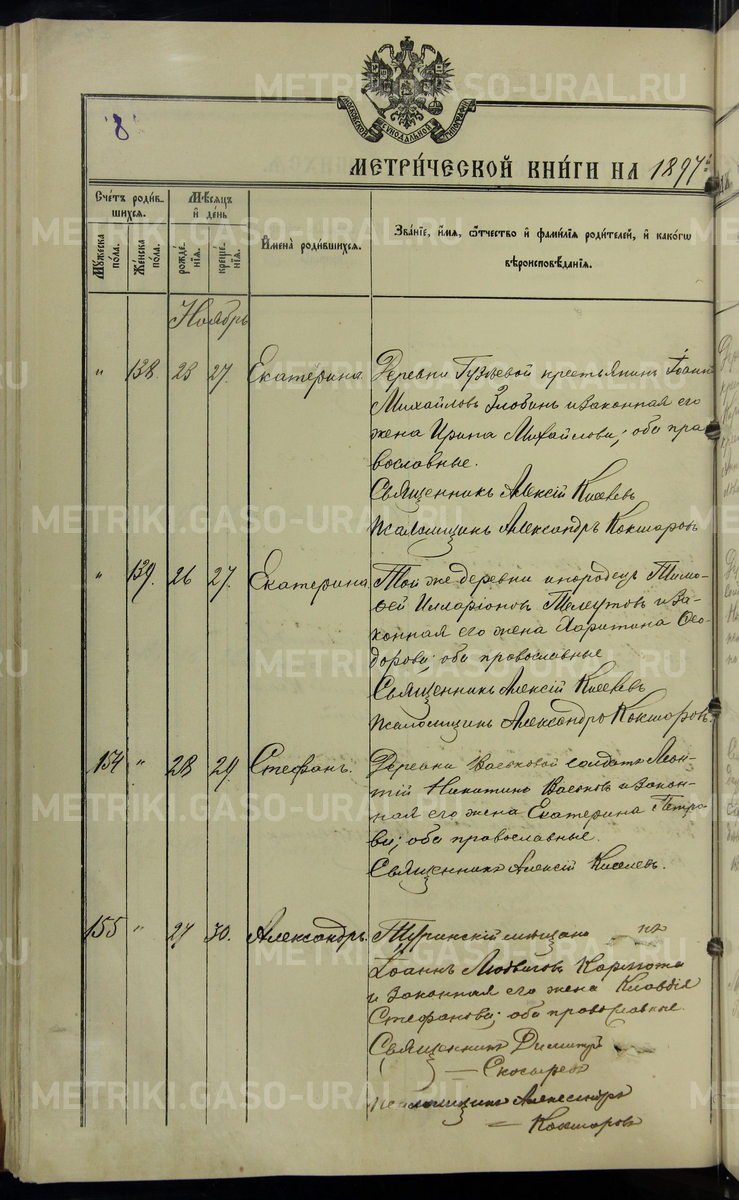 8
МОСКОВСКОЙ СѴНОДАЛЬНОЙ ТИПОГРАФІИ
МЕТРИ́ЧЕСКОЙ КНИ́ГИ НА 1897
Сче́тъ роди́вшихся.
Мѣ́сѧцъ и҆ де́нь
Мꙋ́жеска по́ла.
Же́нска по́ла.
рожде́нїѧ.
креще́нїѧ.
И҆мена̀ роди́вшихсѧ.
Зва́нїе, и҆́мѧ, ѻ҆́тчество и҆ фами́лїѧ роди́телей, и҆ како́гѡ вѣроисповѣ́данїѧ.
Ноябрь
" 138. 23 27. Екатерина. Деревни Гузѣевой крестьянинъ Іоаннъ
Михайловъ Злобинъ и законная его
жена Ирина Михайлова; оба пра
вославные.
Священникъ Алексій Киселевъ
Псаломщикъ Александръ Кокшаровъ
" 139. 26 27. Екатерина. Той же деревни инородецъ Тимо-
ѳей Илларіоновъ Телеутовъ и за-
конная его жена Харитина Ѳео-
дорова; оба православные
Священникъ Алексій Киселевъ
Псаломщикъ Александръ Кокшаровъ.
154 " 28 29. Стефанъ. Деревни солдатъ Леон-
тій Никитинъ и закон-
ная его жена Екатерина Петро-
ва; оба православные.
Священникъ Алексій Киселевъ.
155 " 27 30. Александръ. Туринскій мѣщанинъ
Іоаннъ Людвиговъ
и законная его жена Клавдія
Стефанова; оба православные.
Священникъ Димитрій
Скосыревъ
Псаломщикъ Александръ
Кокшаровъ
METRIKI.GASO-URAL.RU